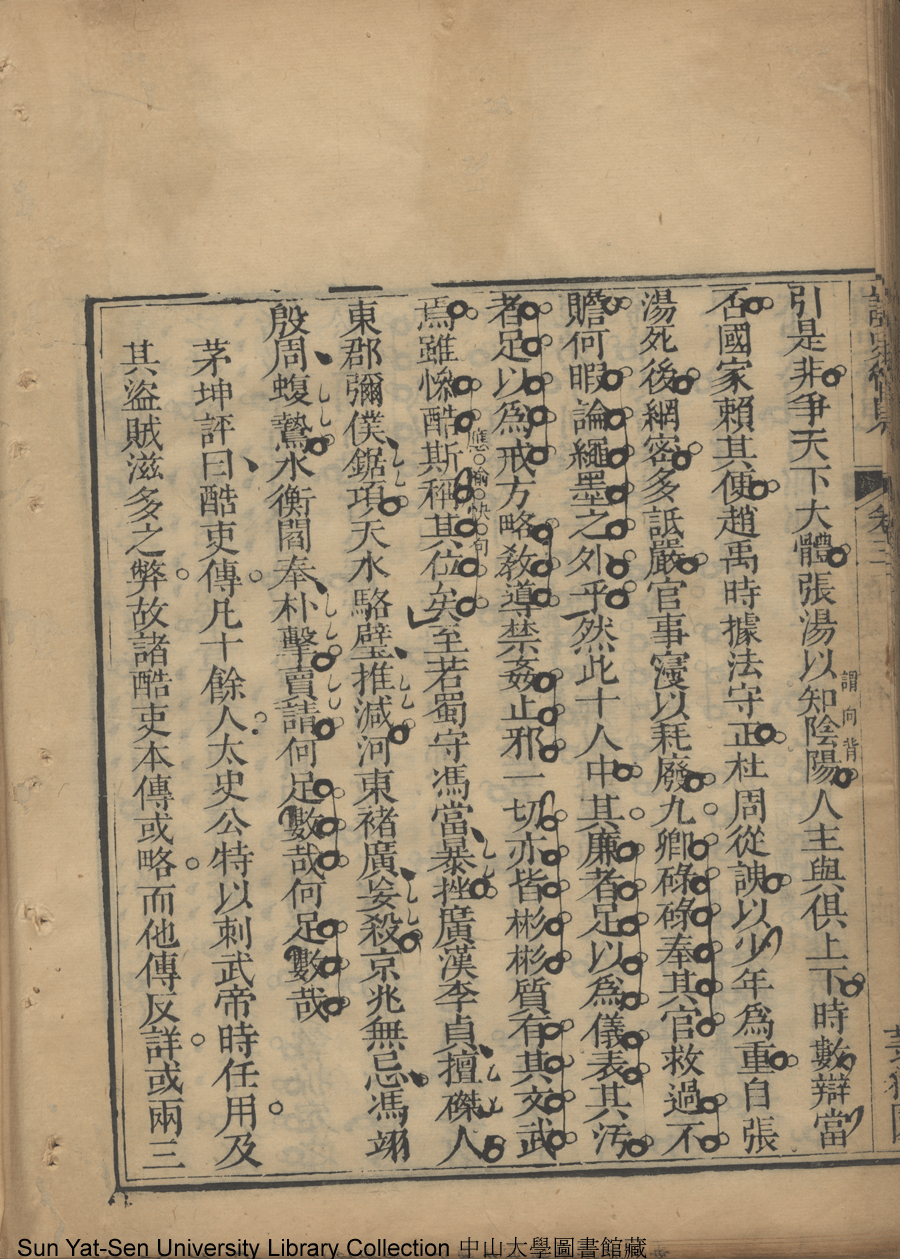 引是非爭天下大體張湯以知陰陽人主與俱上下時數辯當
謂向背
否國家賴其便趙禹時據法守正杜周從諛以少年爲重自張
湯死後網密多詆嚴官事寖以耗廢九卿碌碌奉其官救過不
贍何暇論繩墨之外乎然此十人中其廉者足以爲儀表其汚
者足以爲戒方略敎導禁姦止邪一切亦皆彬彬質有其文武
焉雖慘酷斯稱其位矣至若蜀守馮當暴挫廣漢李貞擅磔人
東郡彌僕鋸項天水駱璧推減河東褚廣妄殺京兆無忌馮翊
殷周蝮鷙水衡閻奉朴擊賣請何足數哉何足數哉
茅坤評曰酷吏傳凡十餘人太史公特以刺武帝時任用及
其盜賊滋多之弊故諸酷吏本傳或略而他傳反詳或兩三
Sun Yat-Sen University Library Collection 中山大學圖書館藏